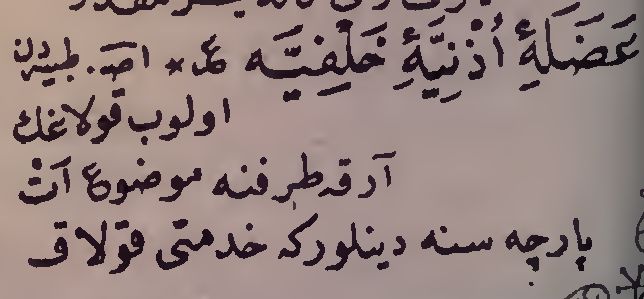 عَضَلَۀِ اُذْنِيَّۀِ خَلْفِيَّه عر * اصـ. طبيدن
اولوب قولاغك
آرقه طرفنه موضوع آتْ
پارچه سنه دينلوركه خدمتى قولاق